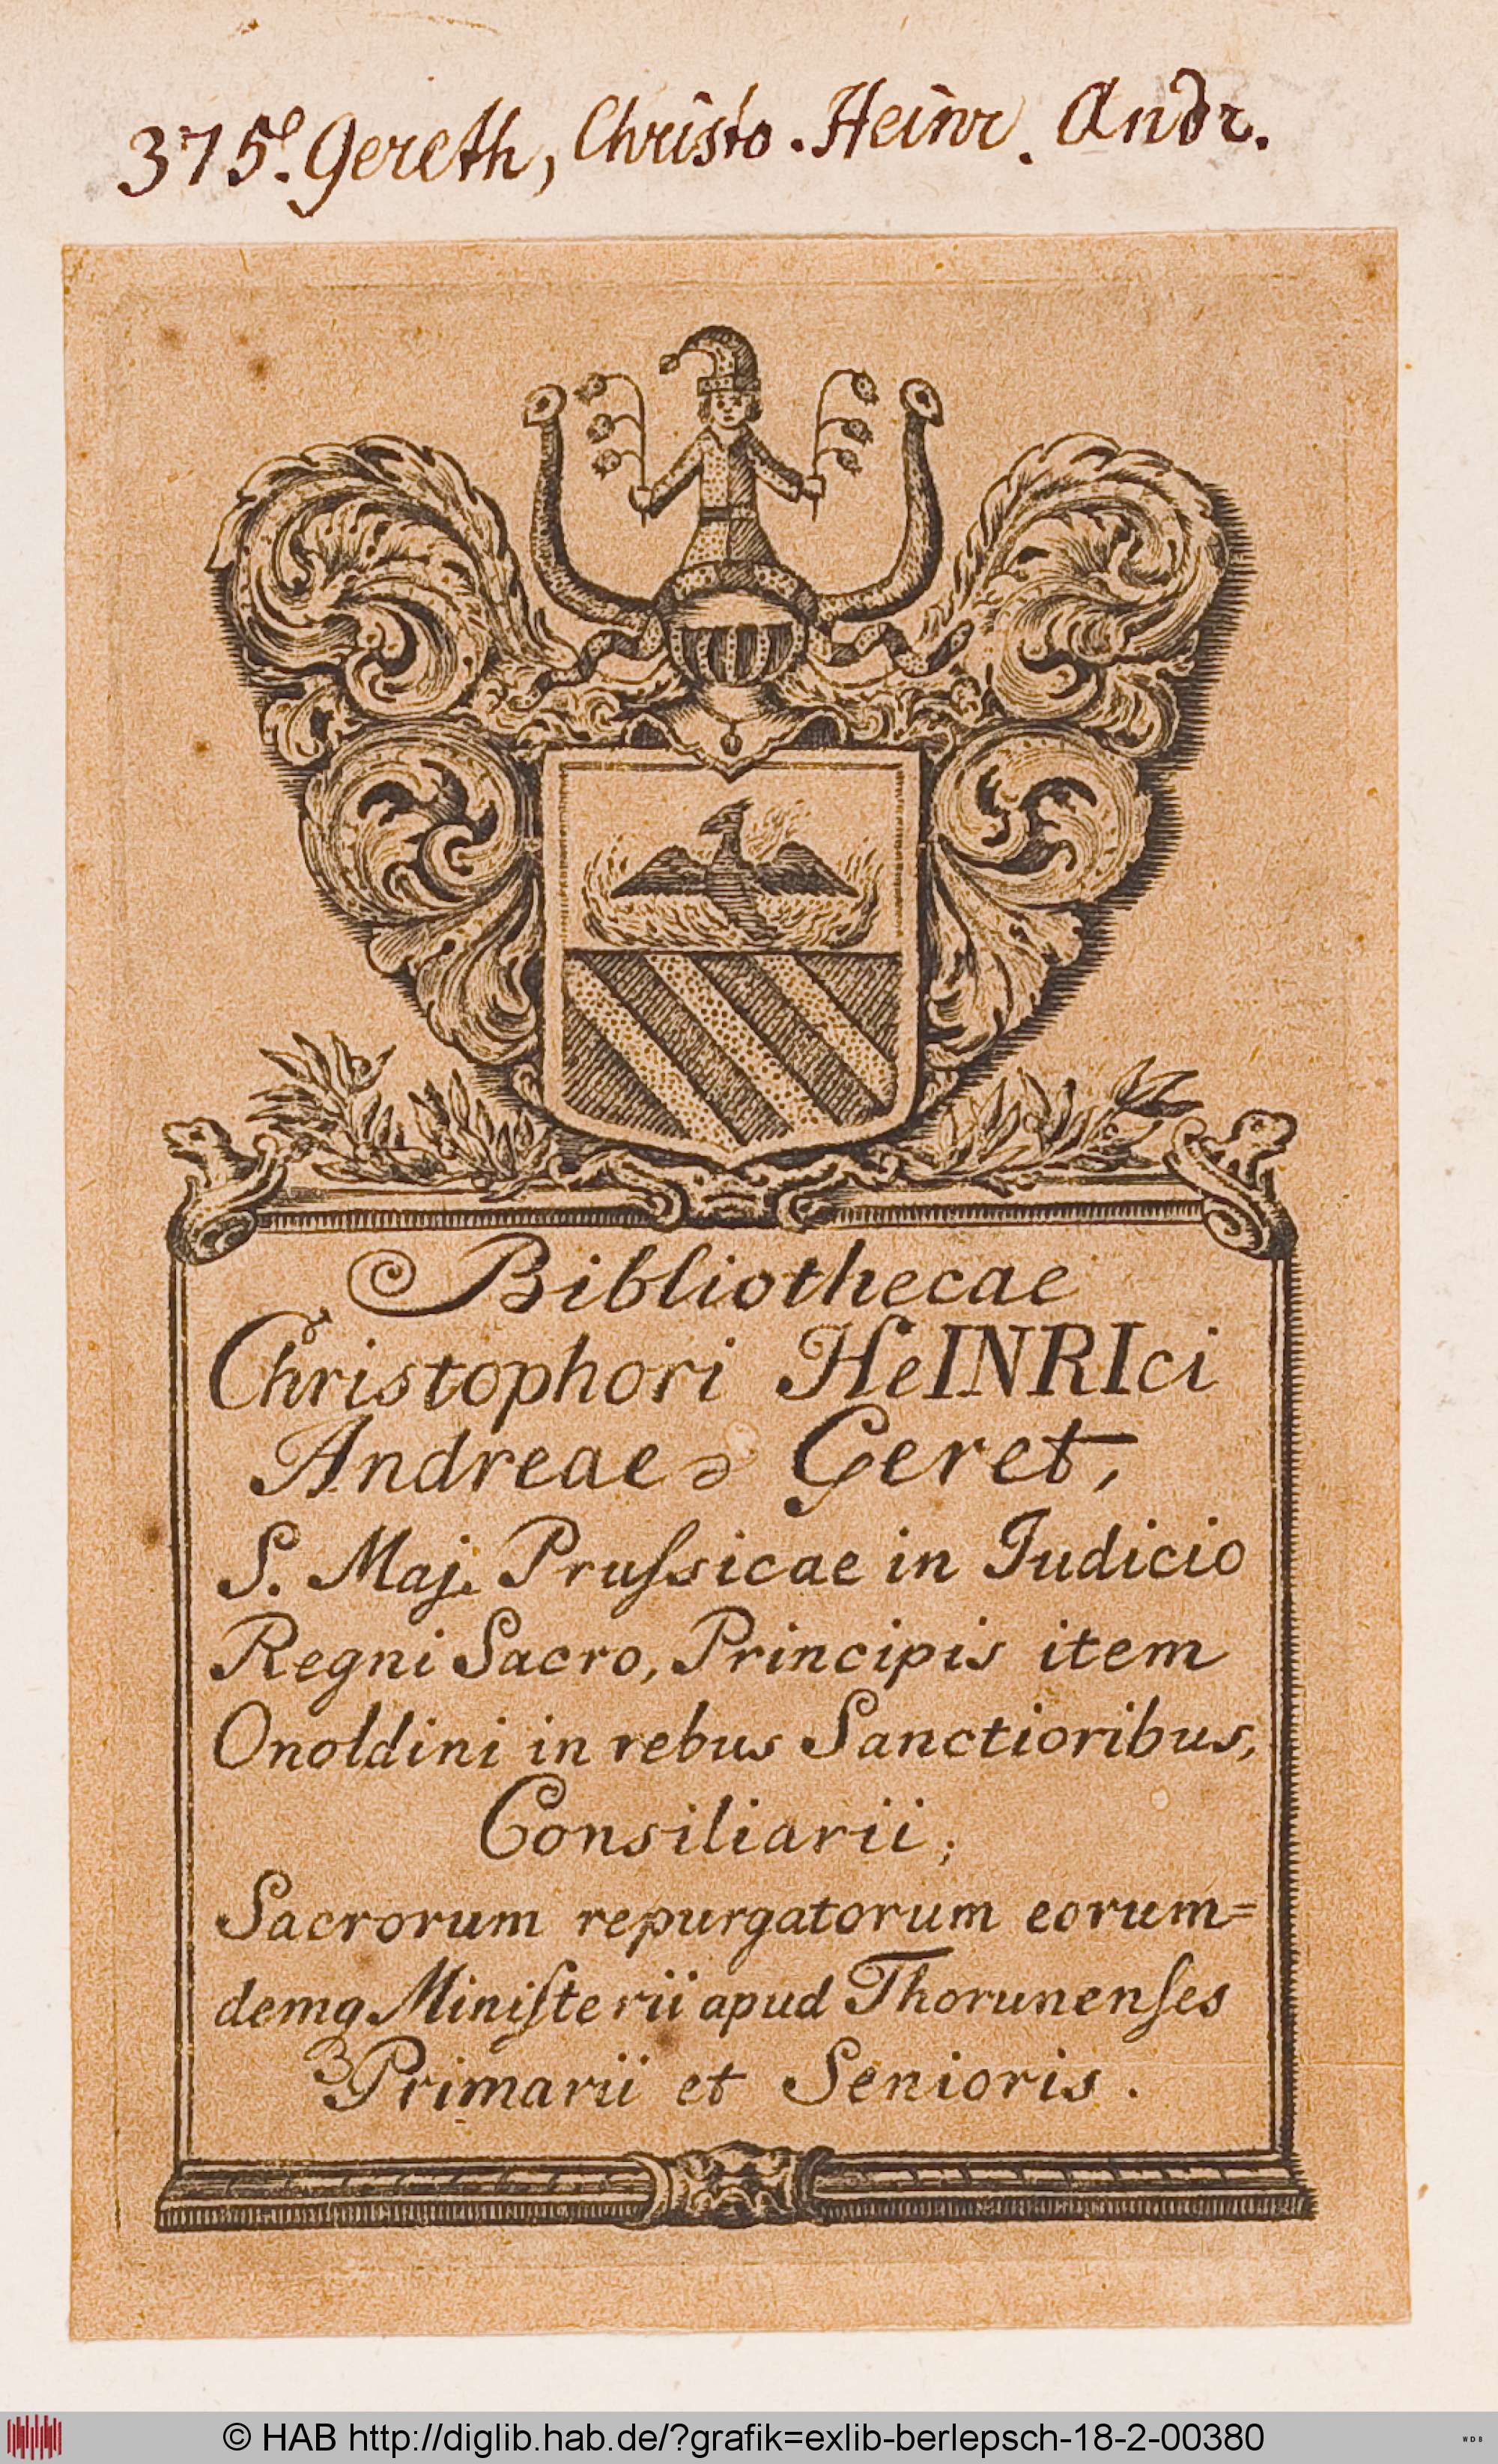 375e. Gereth, Christo. Heinr. Andr.
Bibliothecae
Christophori HeINRIci
Andreae Geret,
S. Maj. Pruſsicae in Iudicio
Regni Sacro, Principis item
Onoldini in rebus Sanctioribus,
Consiliarii;
Sacrorum repurgatorum eorum=
demq₃ Miniſterii apud Thorunenſes
Primarii et Senioris.
© HAB http://diglib.hab.de/?grafik=exlib-berlepsch-18-2-00380
WDB